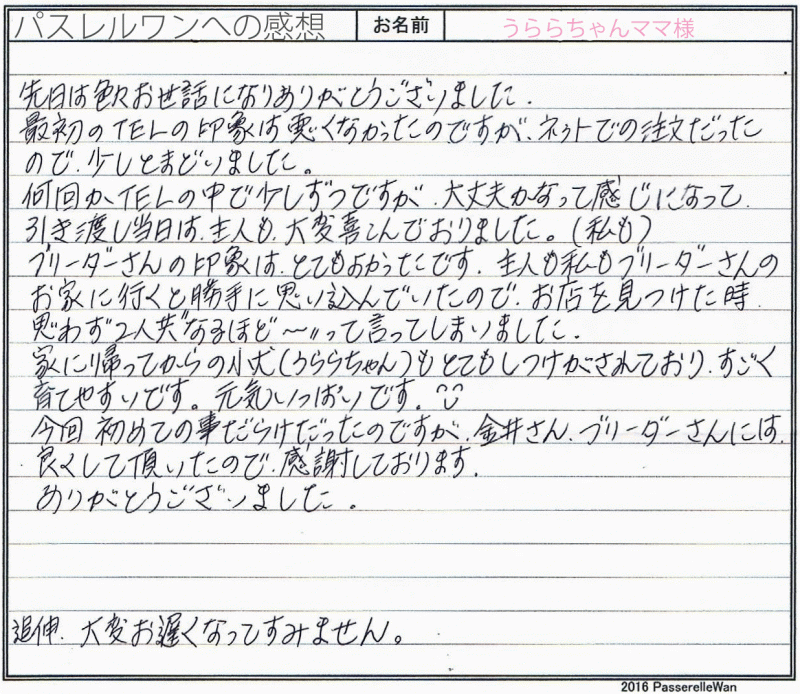 パスレルワンへの感想 お名前 うららちゃんママ様
先日は色々お世話になりありがとうございました.
最初のTELの印象は悪くなかったのですが、ネットでの注文だった
ので、少しとまどいました。
何回か、TELの中で少しずつですが、大丈夫かなって感じになって、
引き渡し当日は、主人も、大変喜こんでおりました。(私も)
ブリーダーさんの印象は、とてもよかったです。主人も私もブリーダーさんの
お家に行くと勝手に思い込んでいたので、お店を見つけた時、
思わず2人共"なるほど〜"って言ってしまいました.
家に帰ってからの小犬(うららちゃん)もとてもしつけがされており、すごく
育てやすいです。元気いっぱいです.
今回 初めての事だらけだったのですが、金井さん、ブリーダーさんには、
良くして頂いたので、感謝しております.
ありがとうございました。
追伸、大変お遅くなってすみません。
2016 PasserelleWan